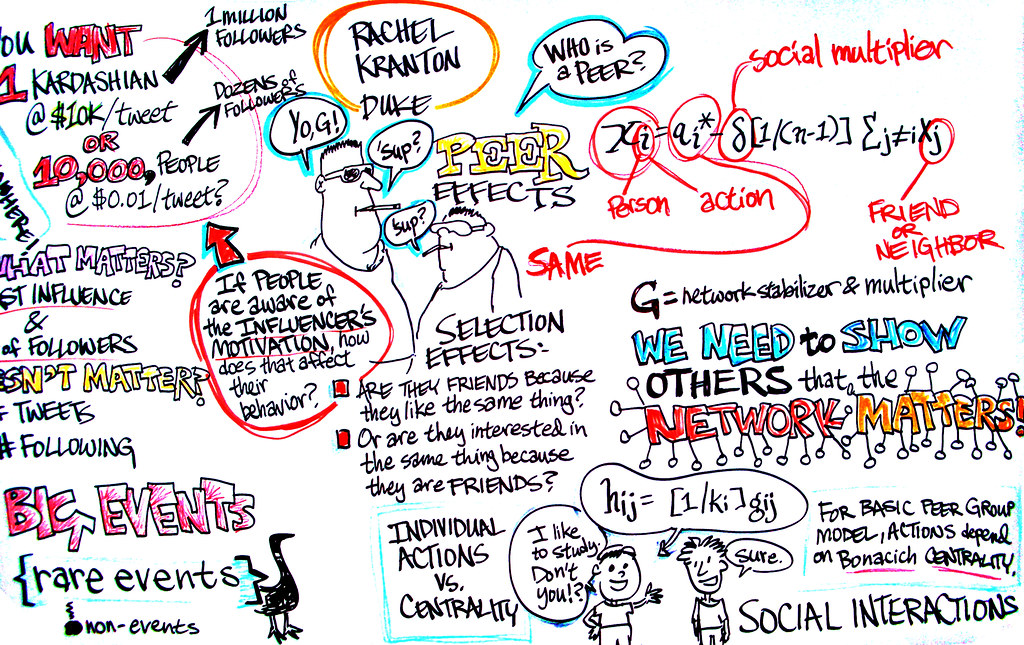 YOU WANT
1 KARDASHIAN
@ $10K/tweet
OR
10,000, PEOPLE
@ $0.01/tweet?
1 MILLION
FOLLOWERS
DOZENS of
FOLLOWERS
WHAT MATTERS?
INFLUENCE
&
of FOLLOWERS
MATTER?
TWEETS
# FOLLOWING
If PEOPLE
are aware of
the INFLUENCER'S
MOTIVATION, how
does that affect
their
behavior?
BIG EVENTS
{rare events}
&
non-events
RACHEL
KRANTON
DUKE
YO, G!
'sup?
'sup?
PEER
EFFECTS
WHO is
a PEER?
social multiplier
xi = ai* - δ[1/(n-1)] Σj≠i xj
Person
action
SAME
FRIEND
OR
NEIGHBOR
G = network stabilizer & multiplier
WE NEED to SHOW
OTHERS that the
NETWORK MATTERS!
SELECTION
EFFECTS:-
ARE THEY FRIENDS Because
they like the same thing?
Or are they interested in
the same thing because
they are FRIENDS?
INDIVIDUAL
ACTIONS
vs.
CENTRALITY
hij = [1/ki] gij
I like
to study.
Don't
you!?
Sure.
SOCIAL INTERACTIONS
FOR BASIC PEER GROUP
MODEL, ACTIONS depend
on Bonacich CENTRALITY.